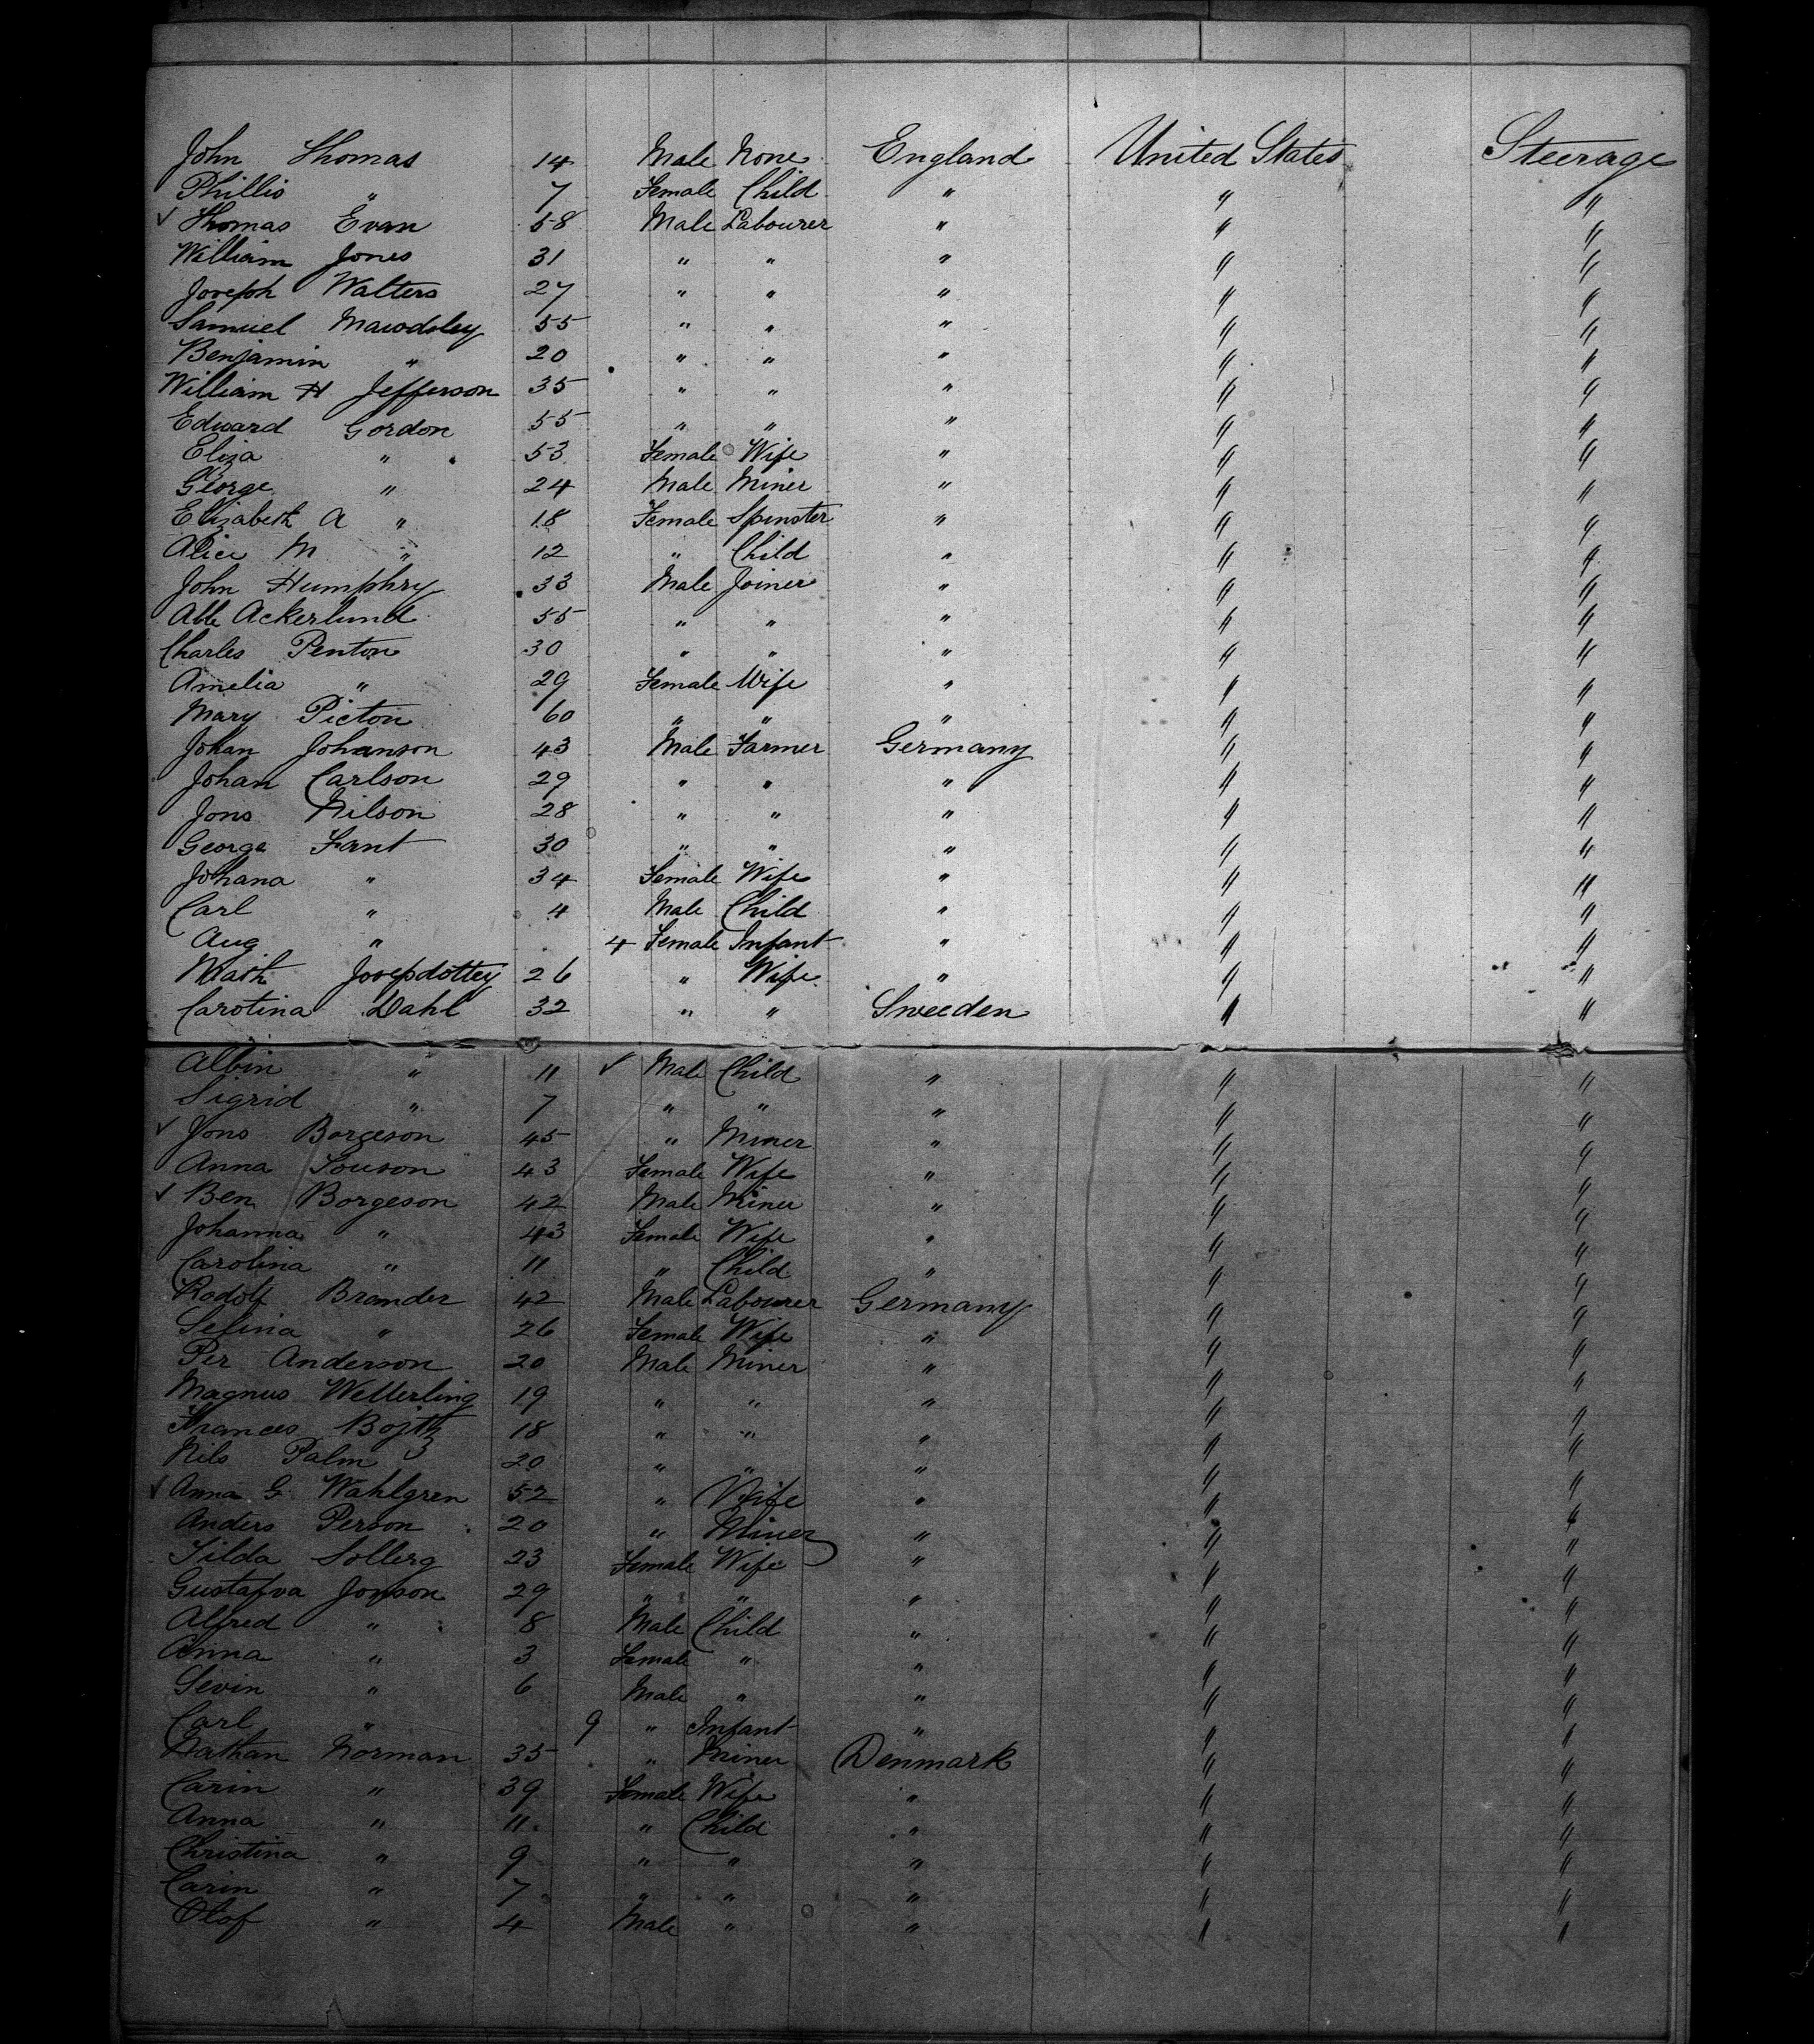 John Thomas 14 Male None England United States Steerage
Phillis " 7 Female Child " " "
✓ Thomas Evan 58 Male Labourer " " "
William Jones 31 " " " " "
Joseph Walters 27 " " " " "
Samuel Mawdsley 55 " " " " "
Benjamin " 20 " " " " "
William H Jefferson 35 " " " " "
Edward Gordon 55 " " " " "
Eliza " 53 Female Wife " " "
George " 24 Male Miner " " "
Elizabeth A " 18 Female Spinster " " "
Alice M " 12 " Child " " "
John Humphry 33 Male Joiner " " "
Able Ackerlund 55 " " " " "
Charles Penton 30 " " " " "
Amelia " 29 Female Wife " " "
Mary Picton 60 " " " " "
Johan Johanson 43 Male Farmer Germany " "
Johan Carlson 29 " " " " "
Jons Nilson 28 " " " " "
George Fant 30 " " " " "
Johana " 34 Female Wife " " "
Carl " 4 Male Child " " "
Aug " 4 Female Infant " " "
Math Josepdottey 26 " Wife " " "
Carotina Dahl 32 " " Sweeden " "
Albin " 11 ✓ Male Child " " "
Sigrid " 7 " " " " "
✓ Jons Borgeson 45 " Miner " " "
Anna Souson 43 Female Wife " " "
✓ Ben Borgeson 42 Male Miner " " "
Johanna " 43 Female Wife " " "
Carolina " 11 " Child " " "
Rodolf Brander 42 Male Labourer Germany " "
Sefina " 26 Female Wife " " "
Per Anderson 20 Male Miner " " "
Magnus Wetterling 19 " " " " "
Frances 18 " " " " "
Nils Palm 20 " " " " "
✓ Anna G Wahlgren 52 " Wife " " "
Anders Person 20 " Miner " " "
Tilda Solberg 23 Female Wife " " "
Gustafva Jonson 29 " " " " "
Alfred " 8 Male Child " " "
Anna " 3 Female " " " "
Sevin " 6 Male " " " "
Carl " 9 " Infant " " "
Nathan Norman 35 " Miner Denmark " "
Carin " 39 Female Wife " " "
Anna " 11 " Child " " "
Christina " 9 " " " " "
Carin " 7 " " " " "
Olof " 4 Male " " " "